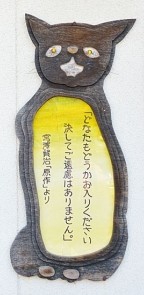 「どなたもどうかお入りください
決してご遠慮はありません。」
宮澤賢治「原作」より